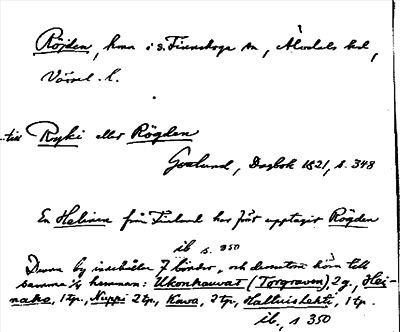 Röjden, hmn i s. Finnskoga sn, Älvdals hd,
Värml. l.
till Ryki eller Rögden
Gottlund, Dagbok 1821, s. 348
En Helinen från Finland har först upptagit Rögden
ib s. 350
Denna by innehåller 7 bönder, och dessutom höra till
samma hemman: Ukonhauvat (Torgraven) 2 g., Hei-
naho, 1 tp., Nuppi 2 tp., Kava, 2 tp., Halluislehti, 1 tp.
ib., s 350